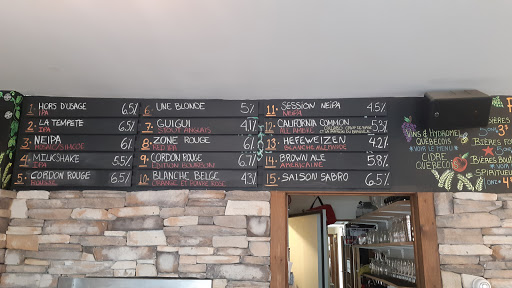 1. HORS D'USAGE 6.5%
IPA
2. LA TEMPETE 6.5%
IPA
3. NEIPA 6%
4. MILKSHAKE 5.5%
IPA
5. CORDON ROUGE 5.5%
ROUSSE
6. UNE BLONDE 5%
7. GUIGUI 4.1%
STOUT ANGLAIS
8. ZONE ROUGE 6.1%
RED IPA
9. CORDON ROUGE 6.7%
EDITION BOURBON
10. BLANCHE BELGE 4.3%
ORANGE ET POIVRE ROSE
11. SESSION NEIPA 4.5%
NEIPA
12. CALIFORNIA COMMON 5.3%
13. HEFEWEIZEN 4.2%
BLANCHE ALLEMANDE
14. BROWN ALE 5.8%
AMERICAINE
15. SAISON SABRO 6.5%
VINS & HYDROMEL
QUÉBÉCOIS
VOIR LE MENU
CIDRE
QUÉBÉCOIS